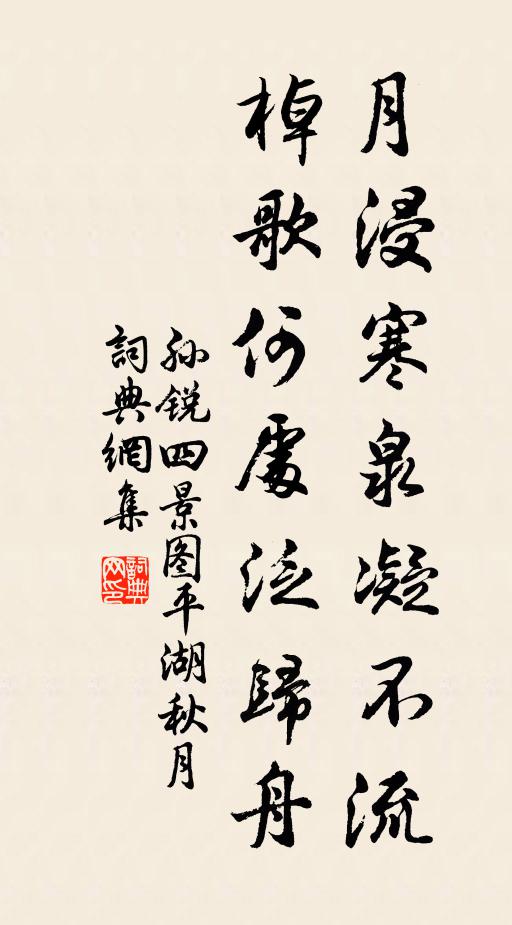 月浸寒泉凝不流
棹歌何處泛歸舟
孙锐四景图平湖秋月
詞典網集
詞典网印